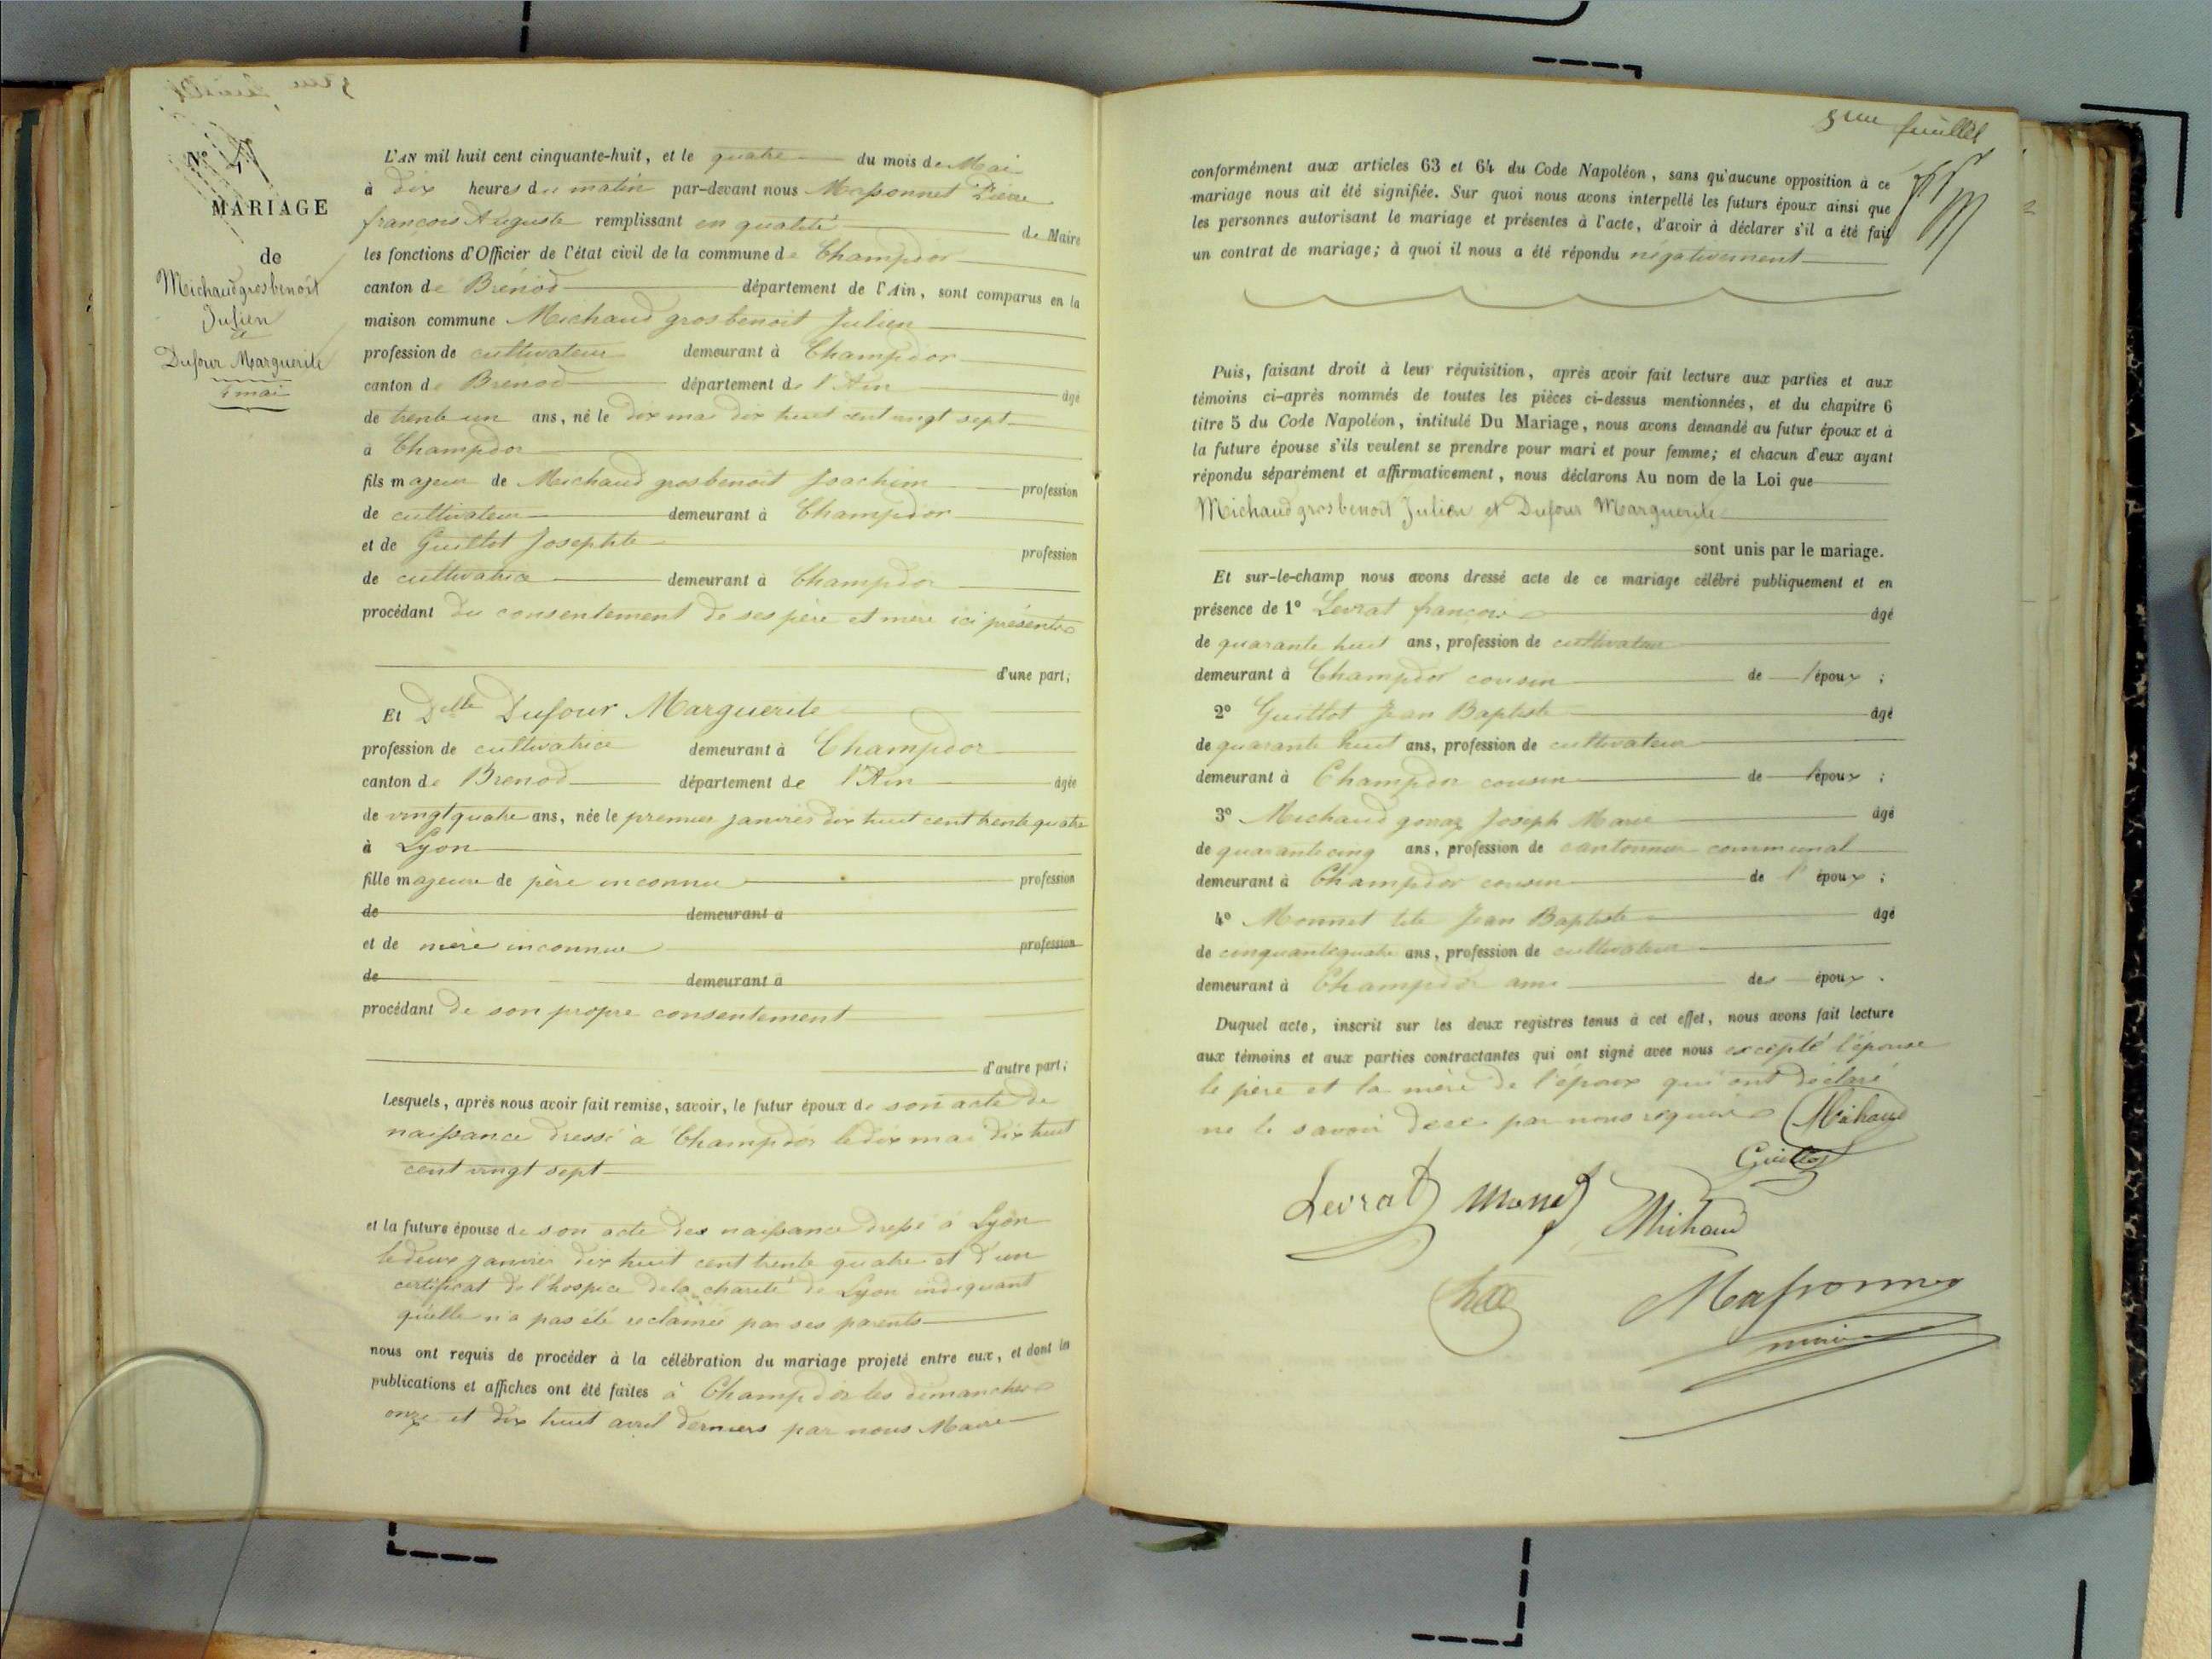 N° 4
MARIAGE
de
Michaud gros benoît
Julien
et
Dufour Marguerite
4 mai
L'AN mil huit cent cinquante-huit, et le quatre du mois de Mai
à dix heures du matin par-devant nous Massonnet Pierre
françois Auguste remplissant en qualité de Maire
les fonctions d'Officier de l'état civil de la commune de Champdor
canton de Brénod département de l'Ain, sont comparus en la
maison commune Michaud gros benoit Julien
profession de cultivateur demeurant à Champdor
canton de Brénod département de l'Ain âgé
de trente un ans, né le dix mai dix huit cent vingt sept
à Champdor
fils majeur de Michaud gros benoit Joachim profession
de cultivateur demeurant à Champdor
et de Guillot Josephte profession
de cultivatrice demeurant à Champdor
procédant du consentement de ses père et mère ici présents
d'une part;
Et Delle Dufour Marguerite
profession de cultivatrice demeurant à Champdor
canton de Brenod département de l'Ain âgée
de vingt quatre ans, née le premier janvier dix huit cent trente quatre
à Lyon
fille majeure de père inconnu profession
de demeurant à
et de mère inconnue profession
de demeurant à
procédant de son propre consentement
d'autre part;
Lesquels, après nous avoir fait remise, savoir, le futur époux de son acte de
naissance dressé à Champdor le dix mai dix huit
cent vingt sept
et la future épouse de son acte des naissance dressé à Lyon
le deux janvier dix huit cent trente quatre et d'un
certificat de l'hospice de la charité de Lyon indiquant
qu'elle n'a pas été réclamée par ses parents
nous ont requis de procéder à la célébration du mariage projeté entre eux, et dont les
publications et affiches ont été faites à Champdor les dimanches
onze et dix huit avril derniers par nous Maire
5me feuillet
conformément aux articles 63 et 64 du Code Napoléon, sans qu'aucune opposition à ce
mariage nous ait été signifiée. Sur quoi nous avons interpellé les futurs époux ainsi que
les personnes autorisant le mariage et présentes à l'acte, d'avoir à déclarer s'il a été fait
un contrat de mariage; à quoi il nous a été répondu négativement
Puis, faisant droit à leur réquisition, après avoir fait lecture aux parties et aux
témoins ci-après nommés de toutes les pièces ci-dessus mentionnées, et du chapitre 6
titre 5 du Code Napoléon, intitulé Du Mariage, nous avons demandé au futur époux et à
la future épouse s'ils veulent se prendre pour mari et pour femme; et chacun d'eux ayant
répondu séparément et affirmativement, nous déclarons Au nom de la Loi que
Michaud gros benoit Julien et Dufour Marguerite
sont unis par le mariage.
Et sur-le-champ nous avons dressé acte de ce mariage célébré publiquement et en
présence de 1° Levrat françois âgé
de quarante huit ans, profession de cultivateur
demeurant à Champdor cousin de l'époux ;
2° Guillot Jean Baptiste âgé
de quarante huit ans, profession de cultivateur
demeurant à Champdor cousin de l'époux ;
3° Michaud gonaz Joseph Marie âgé
de quarante cinq ans, profession de cantonnier communal
demeurant à Champdor cousin de l'époux ;
4° Monnet tête Jean Baptiste âgé
de cinquante quatre ans, profession de cultivateur
demeurant à Champdor ami des époux.
Duquel acte, inscrit sur les deux registres tenus à cet effet, nous avons fait lecture
aux témoins et aux parties contractantes qui ont signé avec nous excepté l'épouse
le père et la mère de l'époux qui ont déclaré
ne le savoir de ce par nous requis Michaud
Guillot
Levrat Monnet Michaud
Massonnet
maire